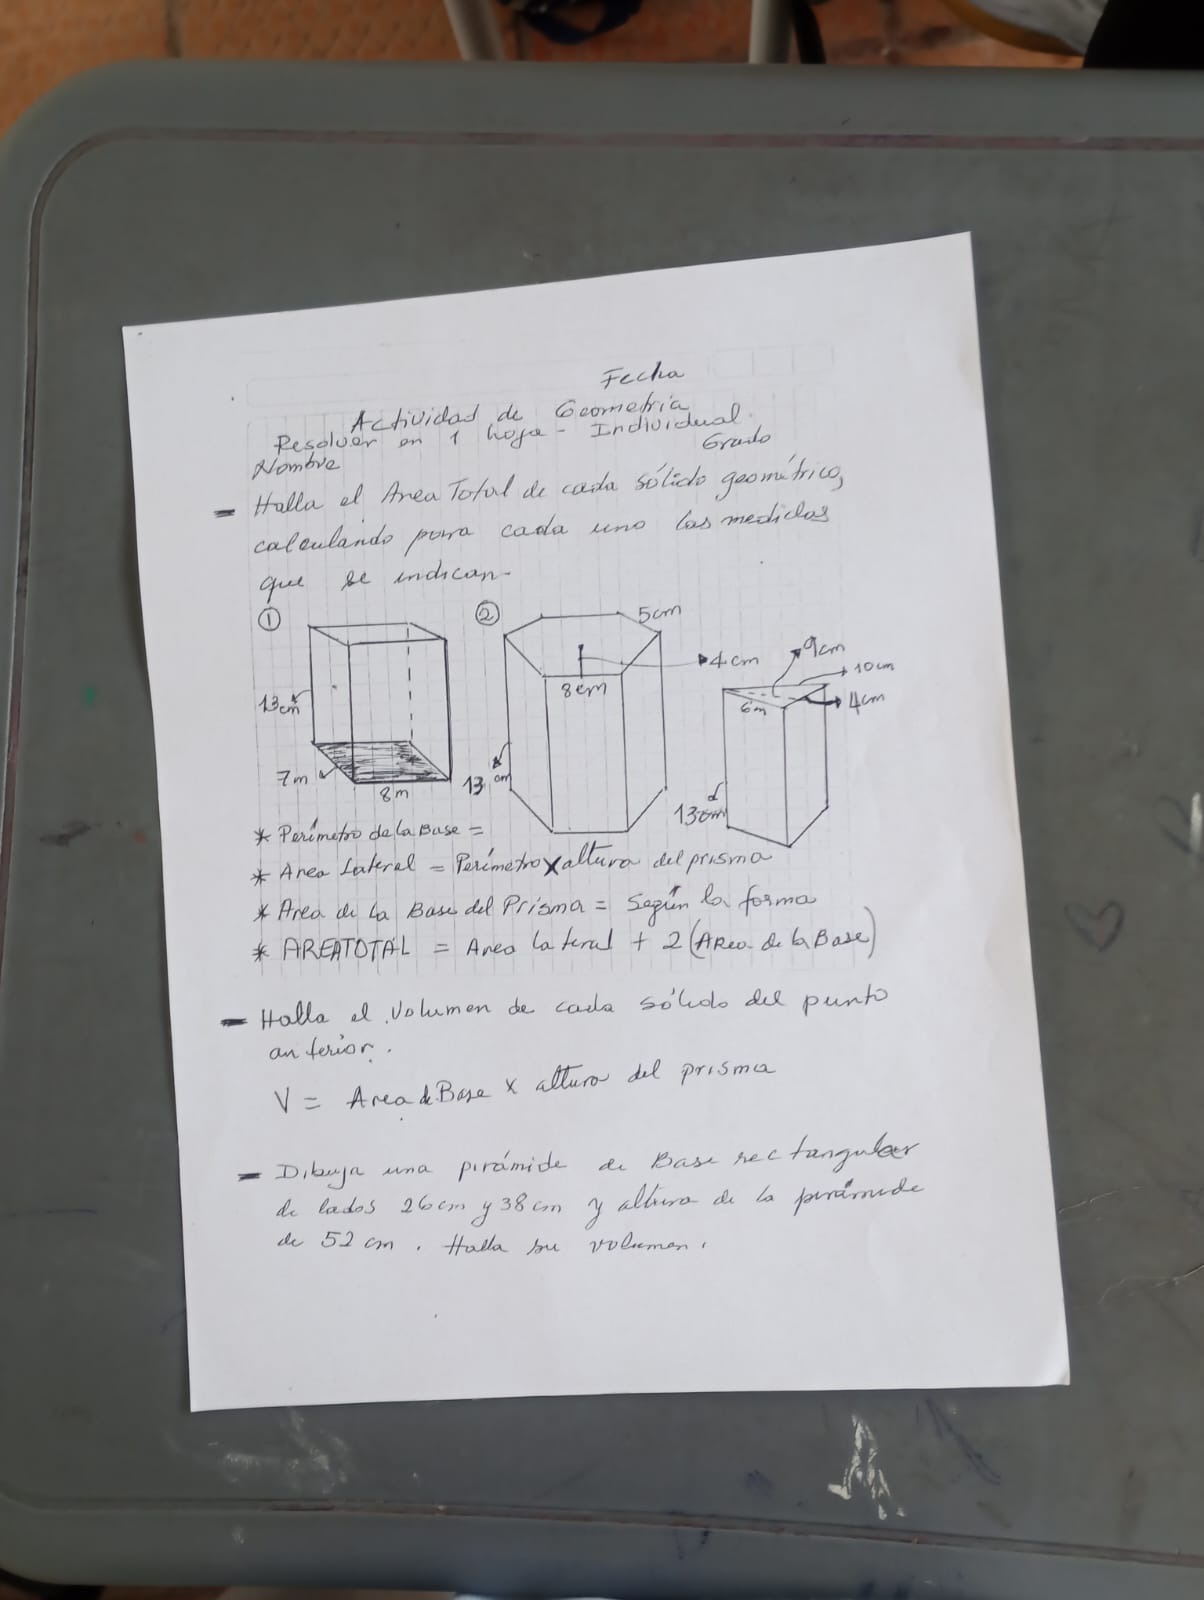 Fecha
Actividad de Geometría
Resolver en 1 hoja - Individual.
Nombre Grado
- Halla el Area Total de cada sólido geométrico,
calculando para cada uno las medidas
que se indican-
① ② 5cm
9cm
4cm 10cm
8cm
13cm 6m 4cm
7m 13 cm
8m 13cm
* Perímetro de la Base =
* Area Lateral = Perímetro x altura del prisma
* Area de la Base del Prisma = Según la forma
* AREATOTAL = Area lateral + 2 (Area de la Base)
- Halla el Volumen de cada sólido del punto
anterior.
V = Area de Base x altura del prisma
- Dibuja una pirámide de Base rectangular
de lados 26cm y 38cm y altura de la pirámide
de 52 cm. Halla su volumen.